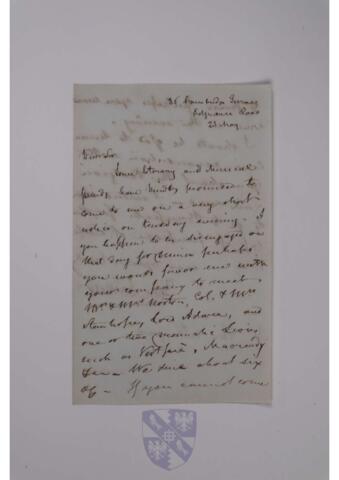 36 Cambridge Terrace
Edgware Road
23 May
Dear Sir
Some literary and musical
friends have kindly promised to
come to me on a very short
notice on Tuesday evening. If
you happen to be disengaged on
that day for dinner perhaps
you would favor me with
your company to meet
Mr & Mrs Norton, Col. & Mrs
Stanhope, Lord Adare, and
one or two dramatic Lions
such as Vestris, Macready
&c. We dine about six
If you cannot come